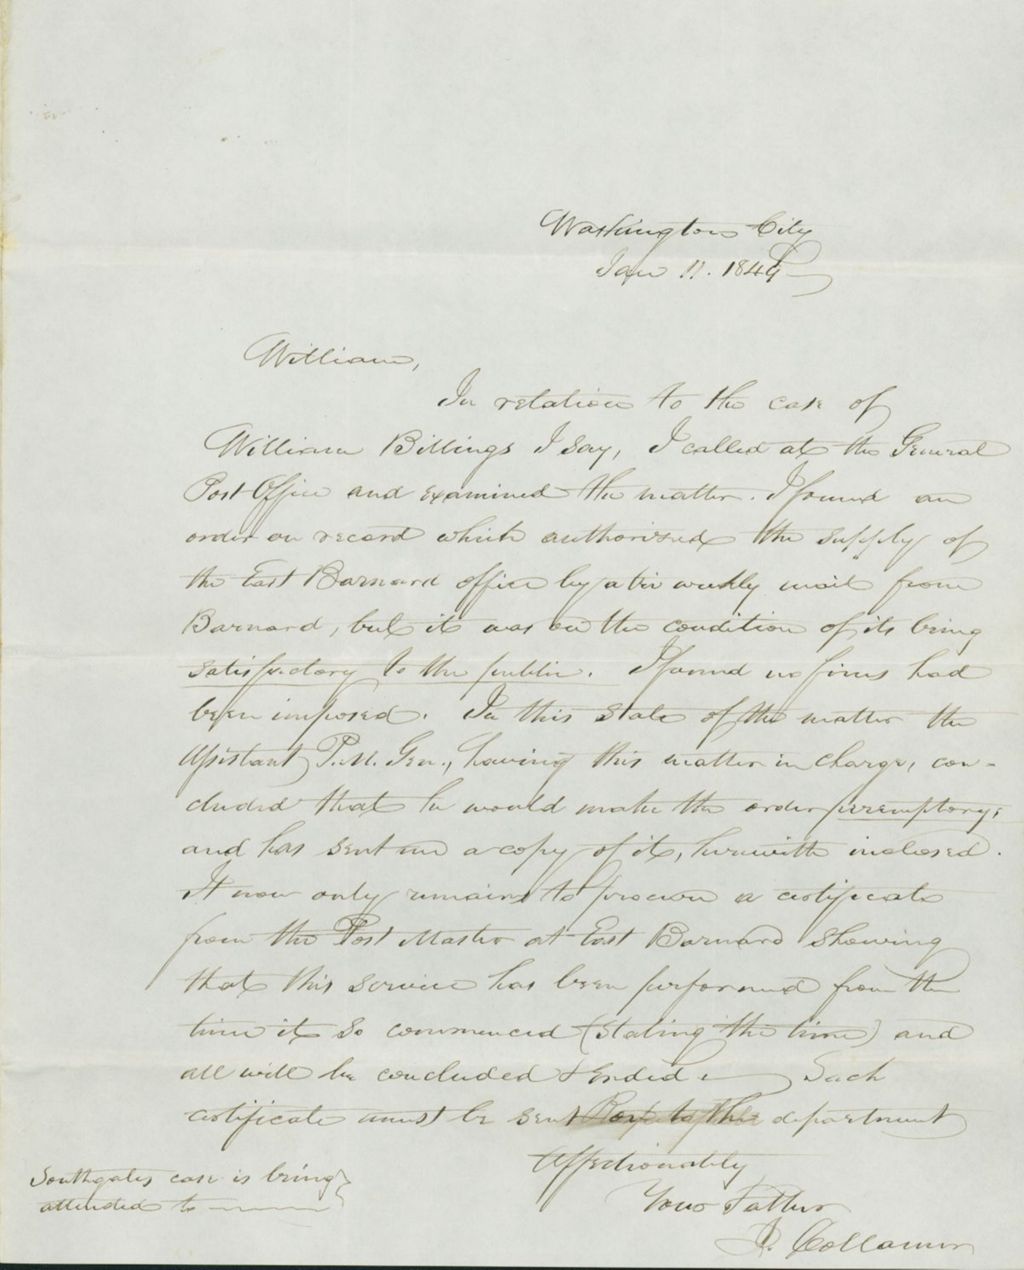 Washington City
Jan 11. 1849
William,
In relation to the case of
William Billings I say, I called at the General
Post Office and examined the matter. I found an
order on record which authorised the supply of
the East Barnard office by a tri weekly mail from
Barnard, but it was on the condition of its being
satisfactory to the public. I found no fines had
been imposed. In this state of the matter the
Assistant P.M. Gen., having this matter in charge, con-
cluded that he would make the order peremptory,
and has sent me a copy of it, herewith inclosed.
It now only remains to procure a certificate
from the Post Master at East Barnard showing
that this service has been performed from the
time it so commenced (stating the time) and
all will be concluded & ended. Such
certificate must be sent to the department
Affectionately
Your Father
J. Collamer
Southgates case is being
attended to